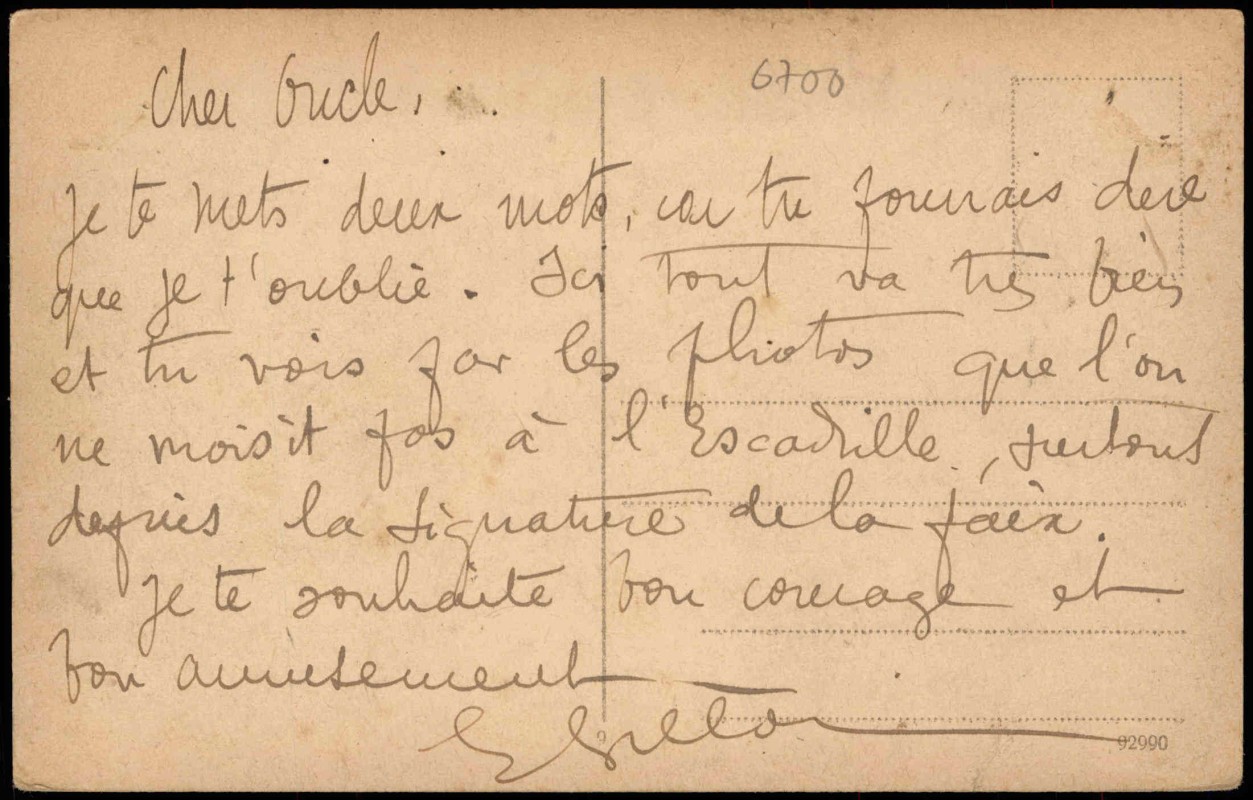 6700
Cher Oncle,
Je te mets deux mots, car tu pourrais dire
que je t'oublie. Ici tout va très bien
et tu vois par les photos que l'on
ne moisit pas à l'Escadrille, surtout
depuis la signature de la paix.
Je te souhaite bon courage et
bon amusement
92990